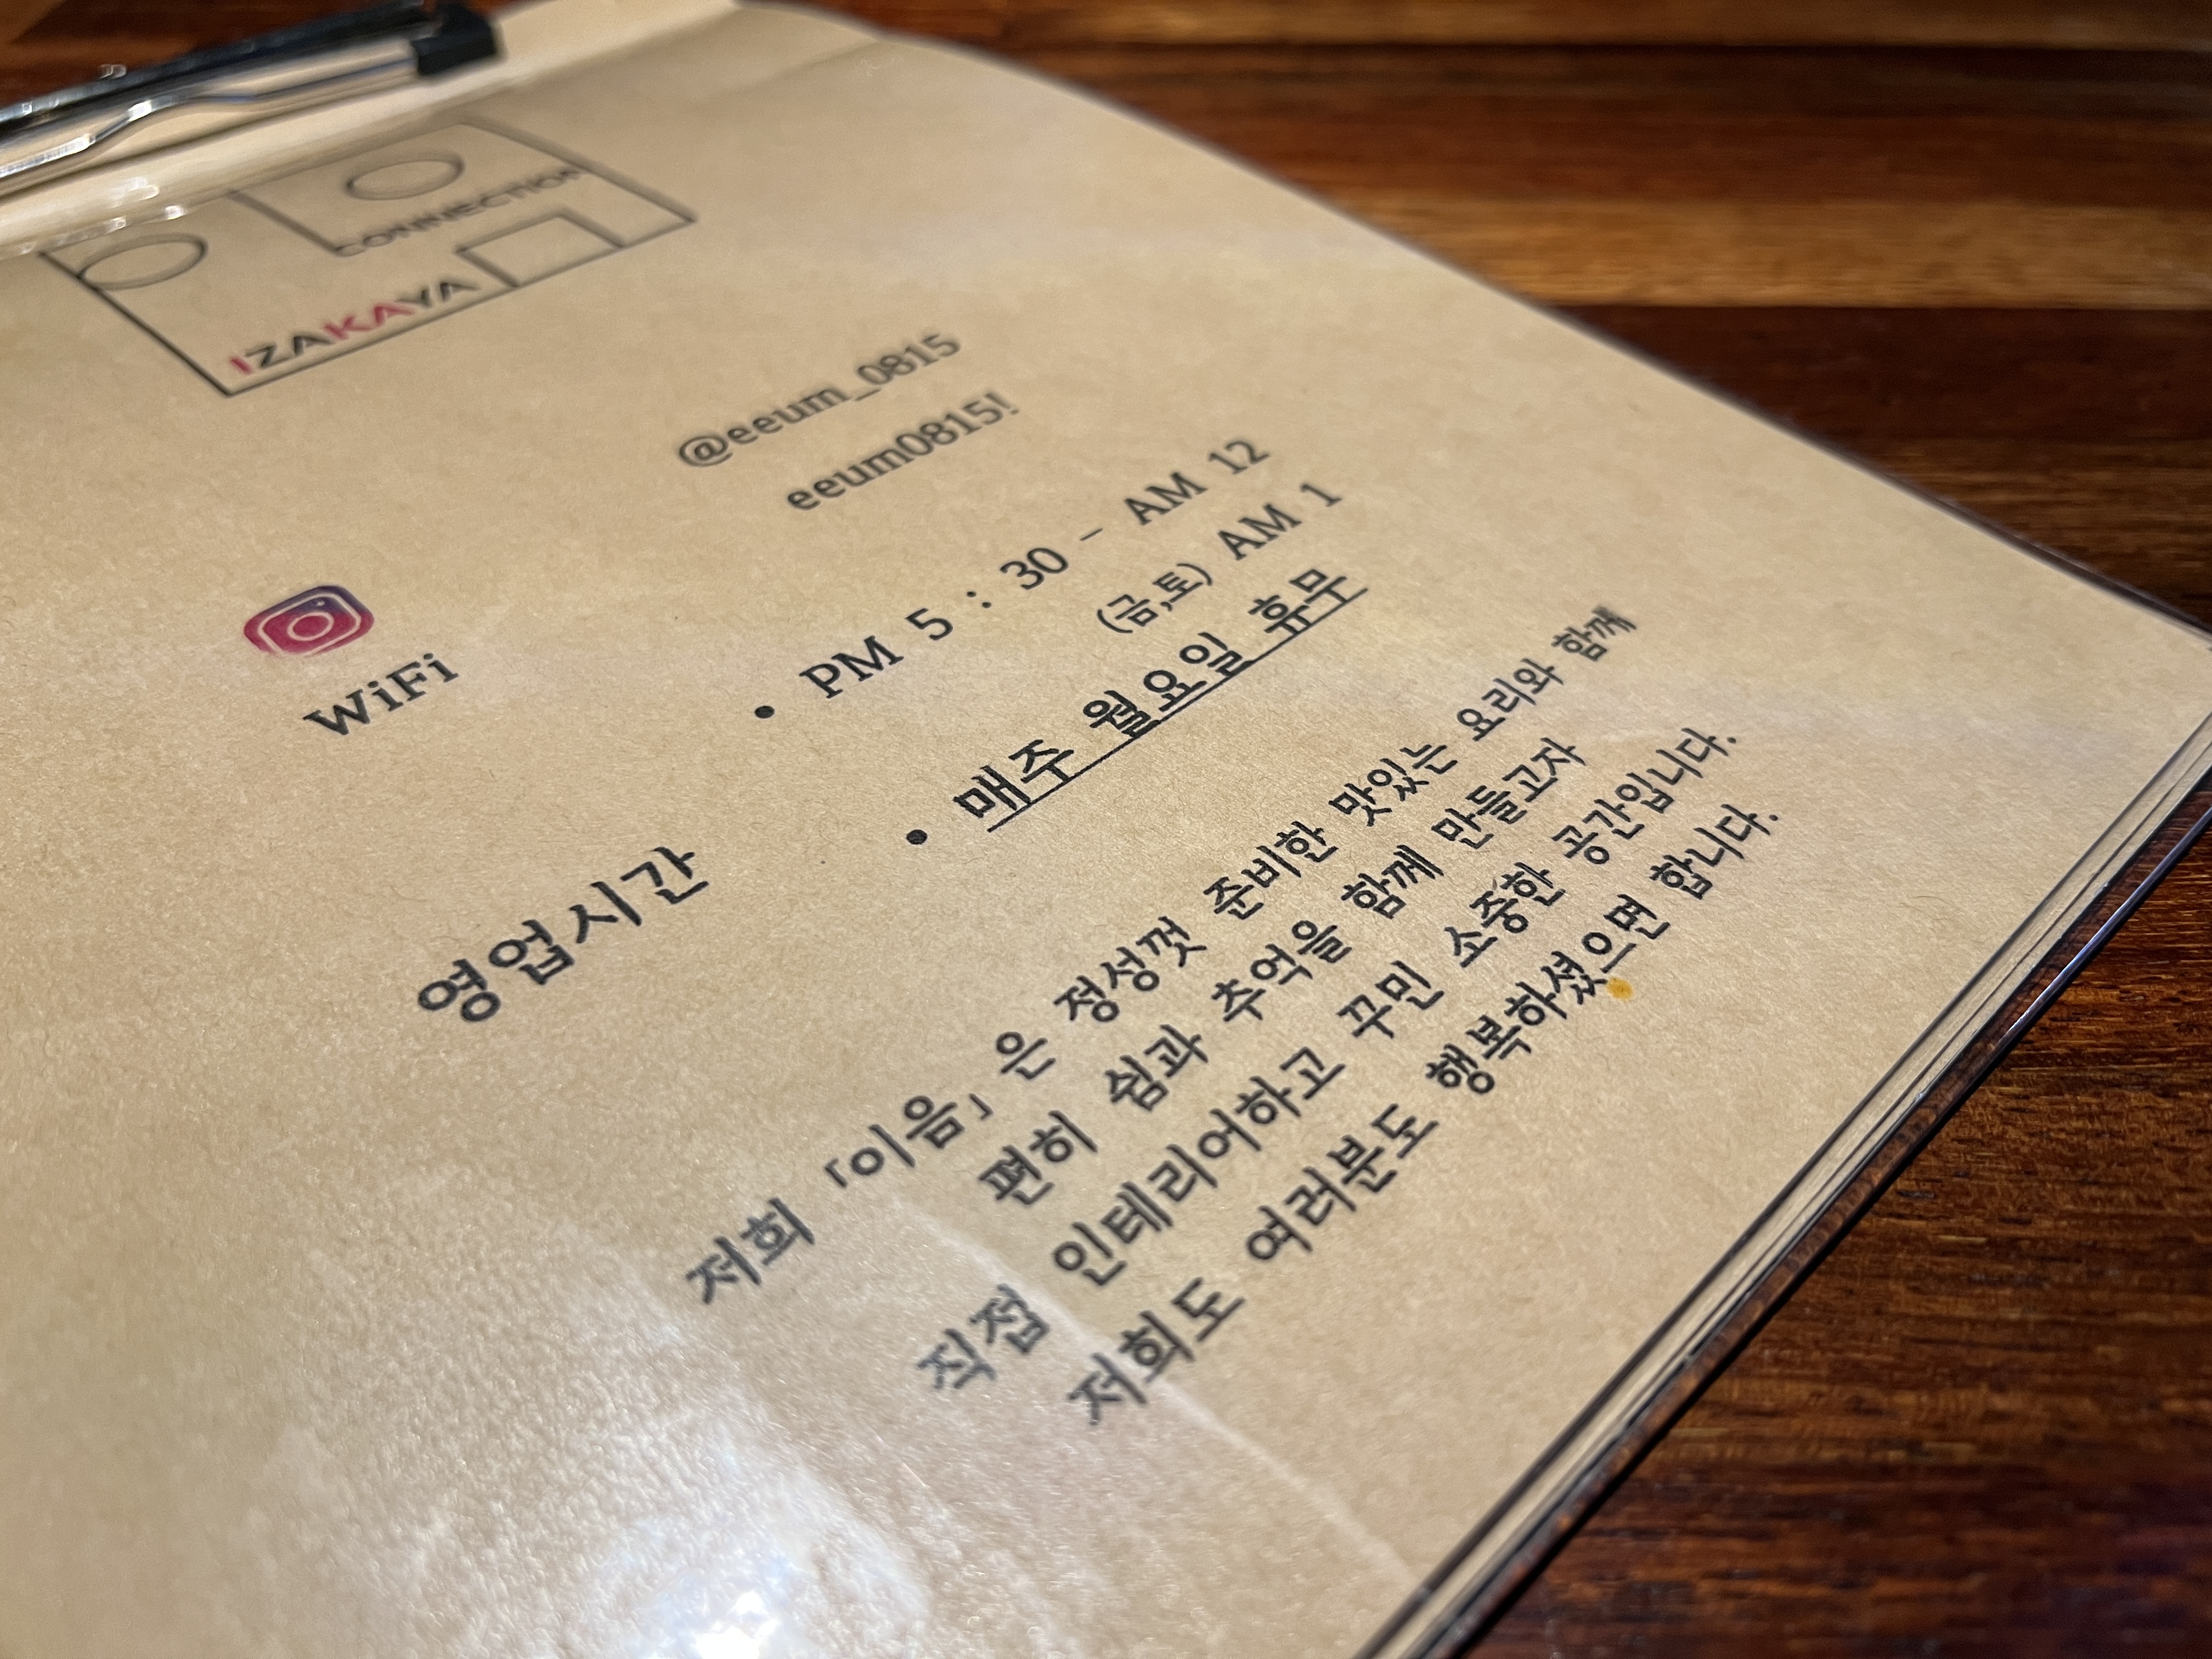 CONNECTION
IZAKAYA
@eeum_0815
WiFi eeum0815!
영업시간 • PM 5 : 30 - AM 12
(금,토) AM 1
• 매주 월요일 휴무
저희 「이음」은 정성껏 준비한 맛있는 요리와 함께
편히 쉼과 추억을 함께 만들고자
직접 인테리어하고 꾸민 소중한 공간입니다.
저희도 여러분도 행복하셨으면 합니다.